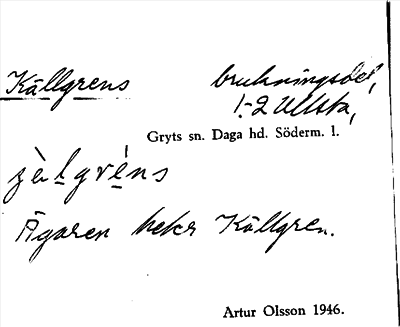 Källgrens brukningsdel,
1-2 Ullsta,
Gryts sn. Daga hd. Söderm. l.
Ägaren heter Källgren.
Artur Olsson 1946.